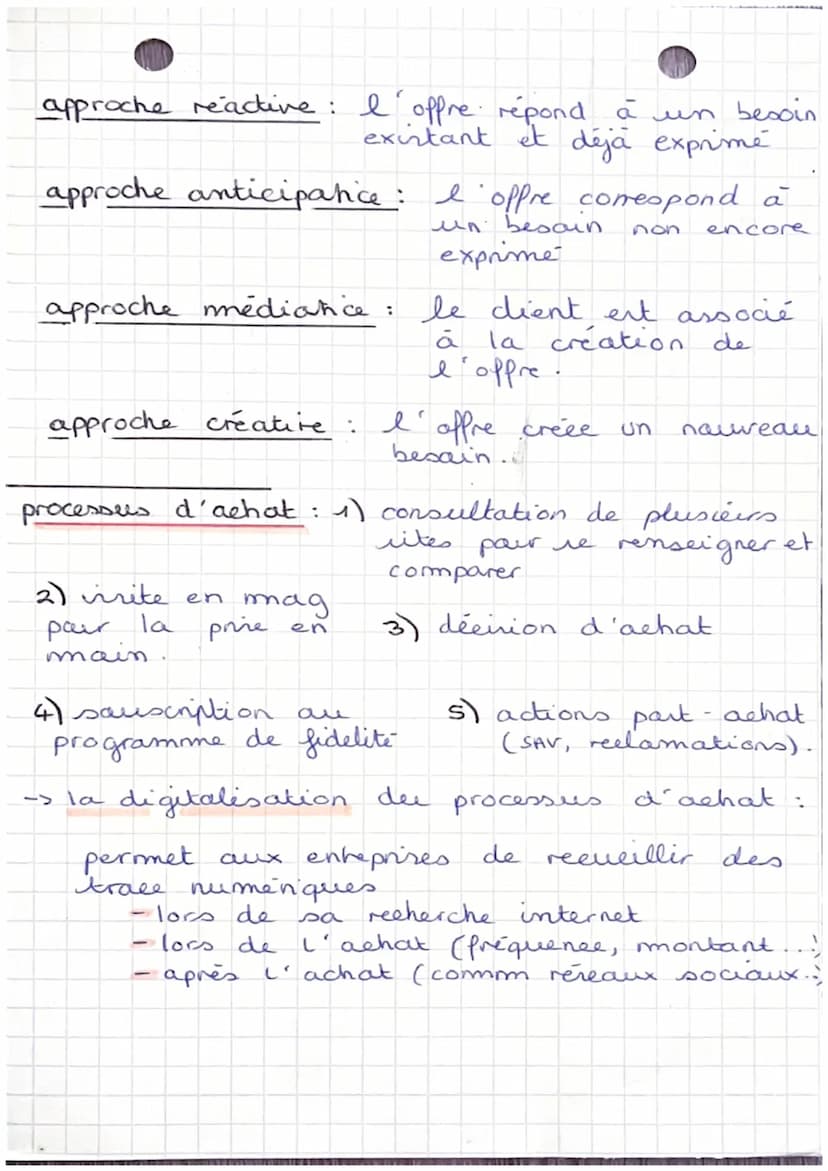 approche réactive : l'offre répond à un besoin
existant et déjà exprimé
approche anticipatrice : l'offre correspond à
un besoin non encore
exprimé
approche médiatrice : le client est associé
à la création de
l'offre.
approche créative : l'offre créée un nouveau
besoin.
processus d'achat : 1) consultation de plusieurs
sites pour se renseigner et
comparer
2) visite en mag
pour la prise en
main.
3) décision d'achat
4) souscription au
programme de fidélité
5) actions post-achat
(SAV, réclamations).
-> la digitalisation du processus d'achat :
permet aux entreprises de recueillir des
trace numériques
- lors de sa recherche internet
- lors de l'achat (fréquence, montant...)
- après l'achat (comm réseaux sociaux..)